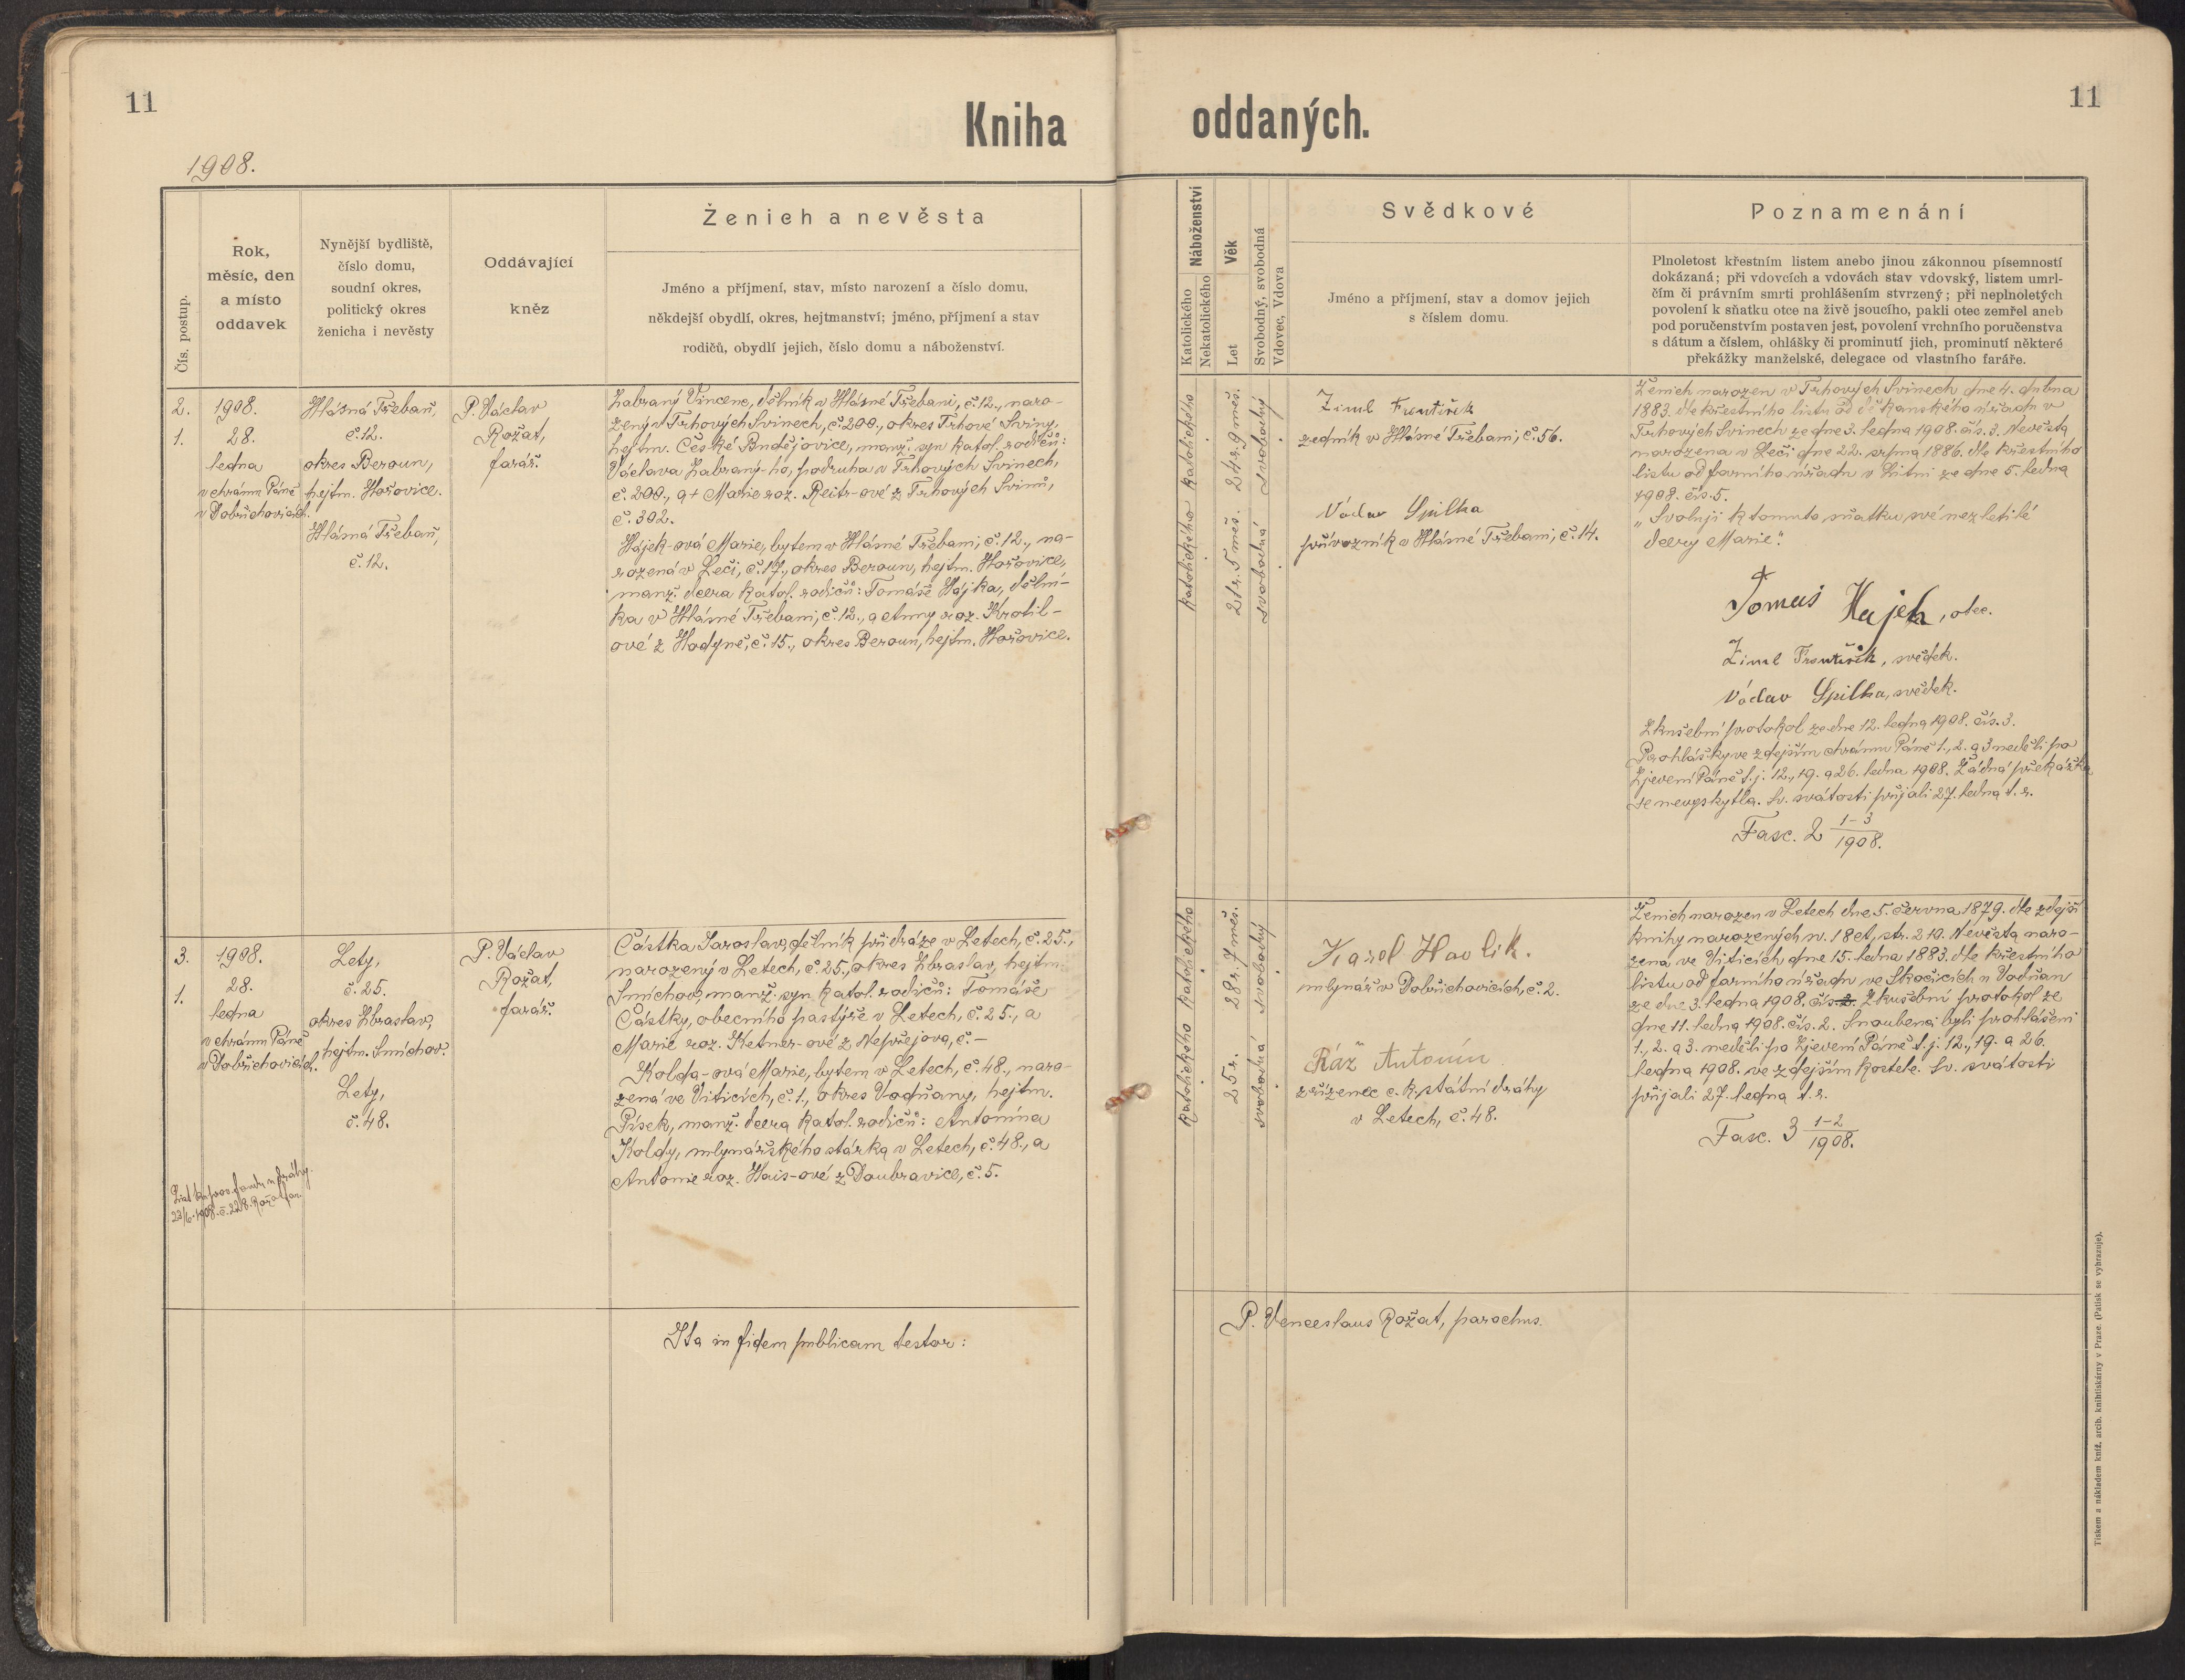 11
Kniha
1908.
Čís. postup.
Rok,
měsíc, den
a místo
oddavek
Nynější bydliště,
číslo domu,
soudní okres,
politický okres
ženicha i nevěsty
Oddávající
kněz
Ženich a nevěsta
Jméno a příjmení, stav, místo narození a číslo domu,
někdejší obydlí, okres, hejtmanství; jméno, příjmení a stav
rodičů, obydlí jejich, číslo domu a náboženství.
2.
1.
1908.
28.
ledna
v chrámu Páně
v Dobřichovicích.
Hlásná Třebaň,
č. 12.
okres Beroun,
hejtm. Hořovice.
Hlásná Třebaň,
č. 12.
P. Václav
Rožat,
farář.
Zabraný Vincenc, dělník v Hlásné Třebani, č. 12., naro-
zený v Trhových Svinech, č. 200., okres Trhové Sviny,
hejtm. České Budějovice, manž. syn katol. rodičů:
Václava Zabraný-ho, podruha v Trhových Svinech,
č. 200., a + Marie roz. Reitr-ové z Trhových Svinů,
č. 302.
Hájek-ová Marie, bytem v Hlásné Třebani, č. 12., na-
rozená v Leči, č. 17., okres Beroun, hejtm. Hořovice,
manž. dcera katol. rodičů: Tomáše Hájka, dělní-
ka v Hlásné Třebani, č. 12., a Anny roz. Krotil-
ové z Hodyně, č. 15., okres Beroun, hejtm. Hořovice.
3.
1.
1908.
28.
ledna
v chrámu Páně
v Dobřichovicích.
Lety,
č. 25.
okres Zbraslav,
hejtm. Smíchov.
Lety,
č. 48.
P. Václav
Rožat,
farář.
Částka Jaroslav, dělník při dráze v Letech, č. 25.,
narozený v Letech, č. 25., okres Zbraslav, hejtm.
Smíchov, manž. syn katol. rodičů: Tomáše
Částky, obecního pastýře v Letech, č. 25., a
Marie roz. Ketner-ové z Nepřejova, č. –
Kolda-ová Marie, bytem v Letech, č. 48., naro-
zená ve Viticích, č. 1., okres Vodňany, hejtm.
Písek, manž. dcera katol. rodičů: Antonína
Koldy, mlynářského stárka v Letech, č. 48., a
Antonie roz. Hais-ové z Doubravice, č. 5.
23/6. 1908. č. 228. Rožat far.
Ita in fidem publicam testor:
oddaných.
11
Náboženství
Katolického
Nekatolického
Věk
Let
Svobodný, svobodná
Vdovec, Vdova
Svědkové
Jméno a příjmení, stav a domov jejich
s číslem domu.
Poznamenání
Plnoletost křestním listem anebo jinou zákonnou písemností
dokázaná; při vdovcích a vdovách stav vdovský, listem umrl-
čím či právním smrti prohlášením stvrzený; při neplnoletých
povolení k sňatku otce na živě jsoucího, pakli otec zemřel aneb
pod poručenstvím postaven jest, povolení vrchního poručenstva
s dátum a číslem, ohlášky či prominutí jich, prominutí některé
překážky manželské, delegace od vlastního faráře.
Katolického
24 r. 9 měs.
svobodný
Katolického
21 r. 5 měs.
svobodná
Ziml František
zedník v Hlásné Třebani, č. 56.
Václav Spilka
převozník v Hlásné Třebani, č. 14.
Ženich narozen v Trhových Svinech dne 4. dubna
1883. dle křestního listu od děkanského úřadu v
Trhových Svinech ze dne 3. ledna 1908. čís. 3. Nevěsta
narozena v Leči dne 22. srpna 1886. dle křestního
listu od farního úřadu v Litni ze dne 5. ledna
1908. čís. 5.
„Svoluji k tomuto sňatku své nezletilé
dcery Marie".
Tomas Hajek, otec.
Ziml František, svědek.
Václav Spilka, svědek.
Zkušební protokol ze dne 12. ledna 1908. čís. 3.
Prohlášky ve zdejším chrámu Páně 1., 2. a 3 neděli po
Zjevení Páně t. j. 12., 19. a 26. ledna 1908. Žádná překážka
se nevyskytla. Sv. svátosti přijali 27. ledna t. r.
Fasc. 2 1–3/1908.
Katolického
28 r. 7 měs.
svobodný
Katolického
25 r.
svobodná
Karel Havlik.
mlynář v Dobřichovicích, č. 2.
Ráž Antonín
zřízenec c. k. státní dráhy
v Letech, č. 48.
Ženich narozen v Letech dne 5. června 1879. dle zdejší
knihy narozených n. 18 et, str. 210. Nevěsta naro-
zena ve Viticích dne 15. ledna 1883. dle křestního
listu od farního úřadu ve Skočicích u Vodňan
ze dne 3. ledna 1908. čís. 2. Zkušební protokol ze
dne 11. ledna 1908. čís. 2. Snoubenci byli prohlášeni
1., 2. a 3. neděli po Zjevení Páně t. j. 12., 19. a 26.
ledna 1908. ve zdejším kostele. Sv. svátosti
přijali 27. ledna t. r.
Fasc. 3 1–2/1908.
P. Venceslaus Rožat, parochus.
Tiskem a nákladem kníž. arcib. knihtiskárny v Praze. (Patisk se vyhrazuje).